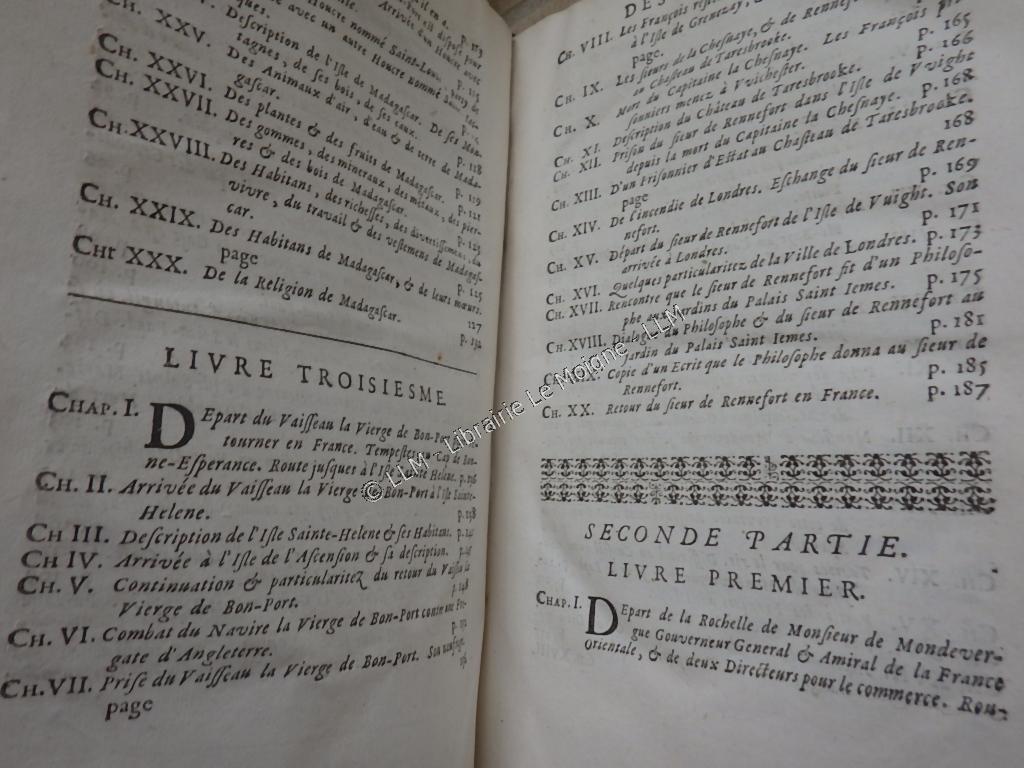 p. 113
avec un autre Houcre nommé Saint-Louis.
Ch. XXV. Description de l'Isle de Madagascar. De ses Mon-
tagnes, de ses bois, de ses eaux.
Ch. XXVI. Des Animaux d'air, d'eau & de terre de Mada-
gascar. p. 118
Ch. XXVII. Des plantes & des fruits de Madagascar. p. 119
Des gommes, des mineraux, des métaux, des pier-
res & des bois de Madagascar. p. 121
Ch. XXVIII. Des Habitans, des richesses, des divertissemens, du
vivre, du travail & des vestemens de Madagas-
car. p. 123
Ch. XXIX. Des Habitans de Madagascar, & de leurs mœurs.
page 125
127
Chr XXX. De la Religion de Madagascar. p. 132
LIVRE TROISIESME
Chap. I. DEpart du Vaisseau la Vierge de Bon-Port
tourner en France. Tempestes au Cap de Bon-
ne-Esperance. Route jusques à l'Isle Sainte Helene. p. 136
Ch. II. Arrivée du Vaisseau la Vierge de Bon-Port à l'isle Sainte-
Helene. p. 138
Ch III. Description de l'Isle Sainte-Helene & ses Habitans. p. 141
Ch IV. Arrivée à l'Isle de l'Ascension & sa description. p. 145
Ch. V. Continuation & particularitez du retour du Vaisseau la
Vierge de Bon-Port. p. 148
Ch. VI. Combat du Navire la Vierge de Bon-Port contre une Fre-
gate d'Angleterre. p. 152
Ch. VII. Prise du Vaisseau la Vierge de Bon-Port. Son naufrage.
page 156
DES
Ch. VIII. Les François
à l'Isle de Grenezay,
page.
Ch. IX. Les sieurs de la Chesnaye, & de Rennefort
au Chasteau de Taresbrooke. p. 165
Ch. X. Mort du Capitaine la Chesnaye. Les François pri-
sonniers menez à Vvichester. p. 166
Ch. XI. Description du Château de Taresbrooke. p. 168
Ch. XII. Prison du sieur de Rennefort dans l'Isle de Vvight
depuis la mort du Capitaine la Chesnaye. p. 168
Ch. XIII. D'un Prisonnier d'Estat au Chasteau de Taresbrooke.
page 168
Ch. XIV. De l'incendie de Londres. Eschange du sieur de Ren-
nefort. p. 169
Ch. XV. Départ du sieur de Rennefort de l'Isle de Vvight. Son
arrivée à Londres. p. 171
Ch. XVI. Quelques particularitez de la Ville de Londres. p. 173
Ch. XVII. Rencontre que le sieur de Rennefort fit d'un Philoso-
phe aux Jardins du Palais Saint Iemes. p. 175
Ch. XVIII. Dialogue du Philosophe & du sieur de Rennefort au
Jardin du Palais Saint Iemes. p. 181
Ch. XIX. Copie d'un Ecrit que le Philosophe donna au sieur de
Rennefort. p. 185
Ch. XX. Retour du sieur de Rennefort en France. p. 187
SECONDE PARTIE.
LIVRE PREMIER.
Chap. I. DEpart de la Rochelle de Monsieur de Mondever-
gue Gouverneur General & Amiral de la France
Orientale, & de deux Directeurs pour le commerce. Rou-
© LLM - Librairie Le Moigne - LLM